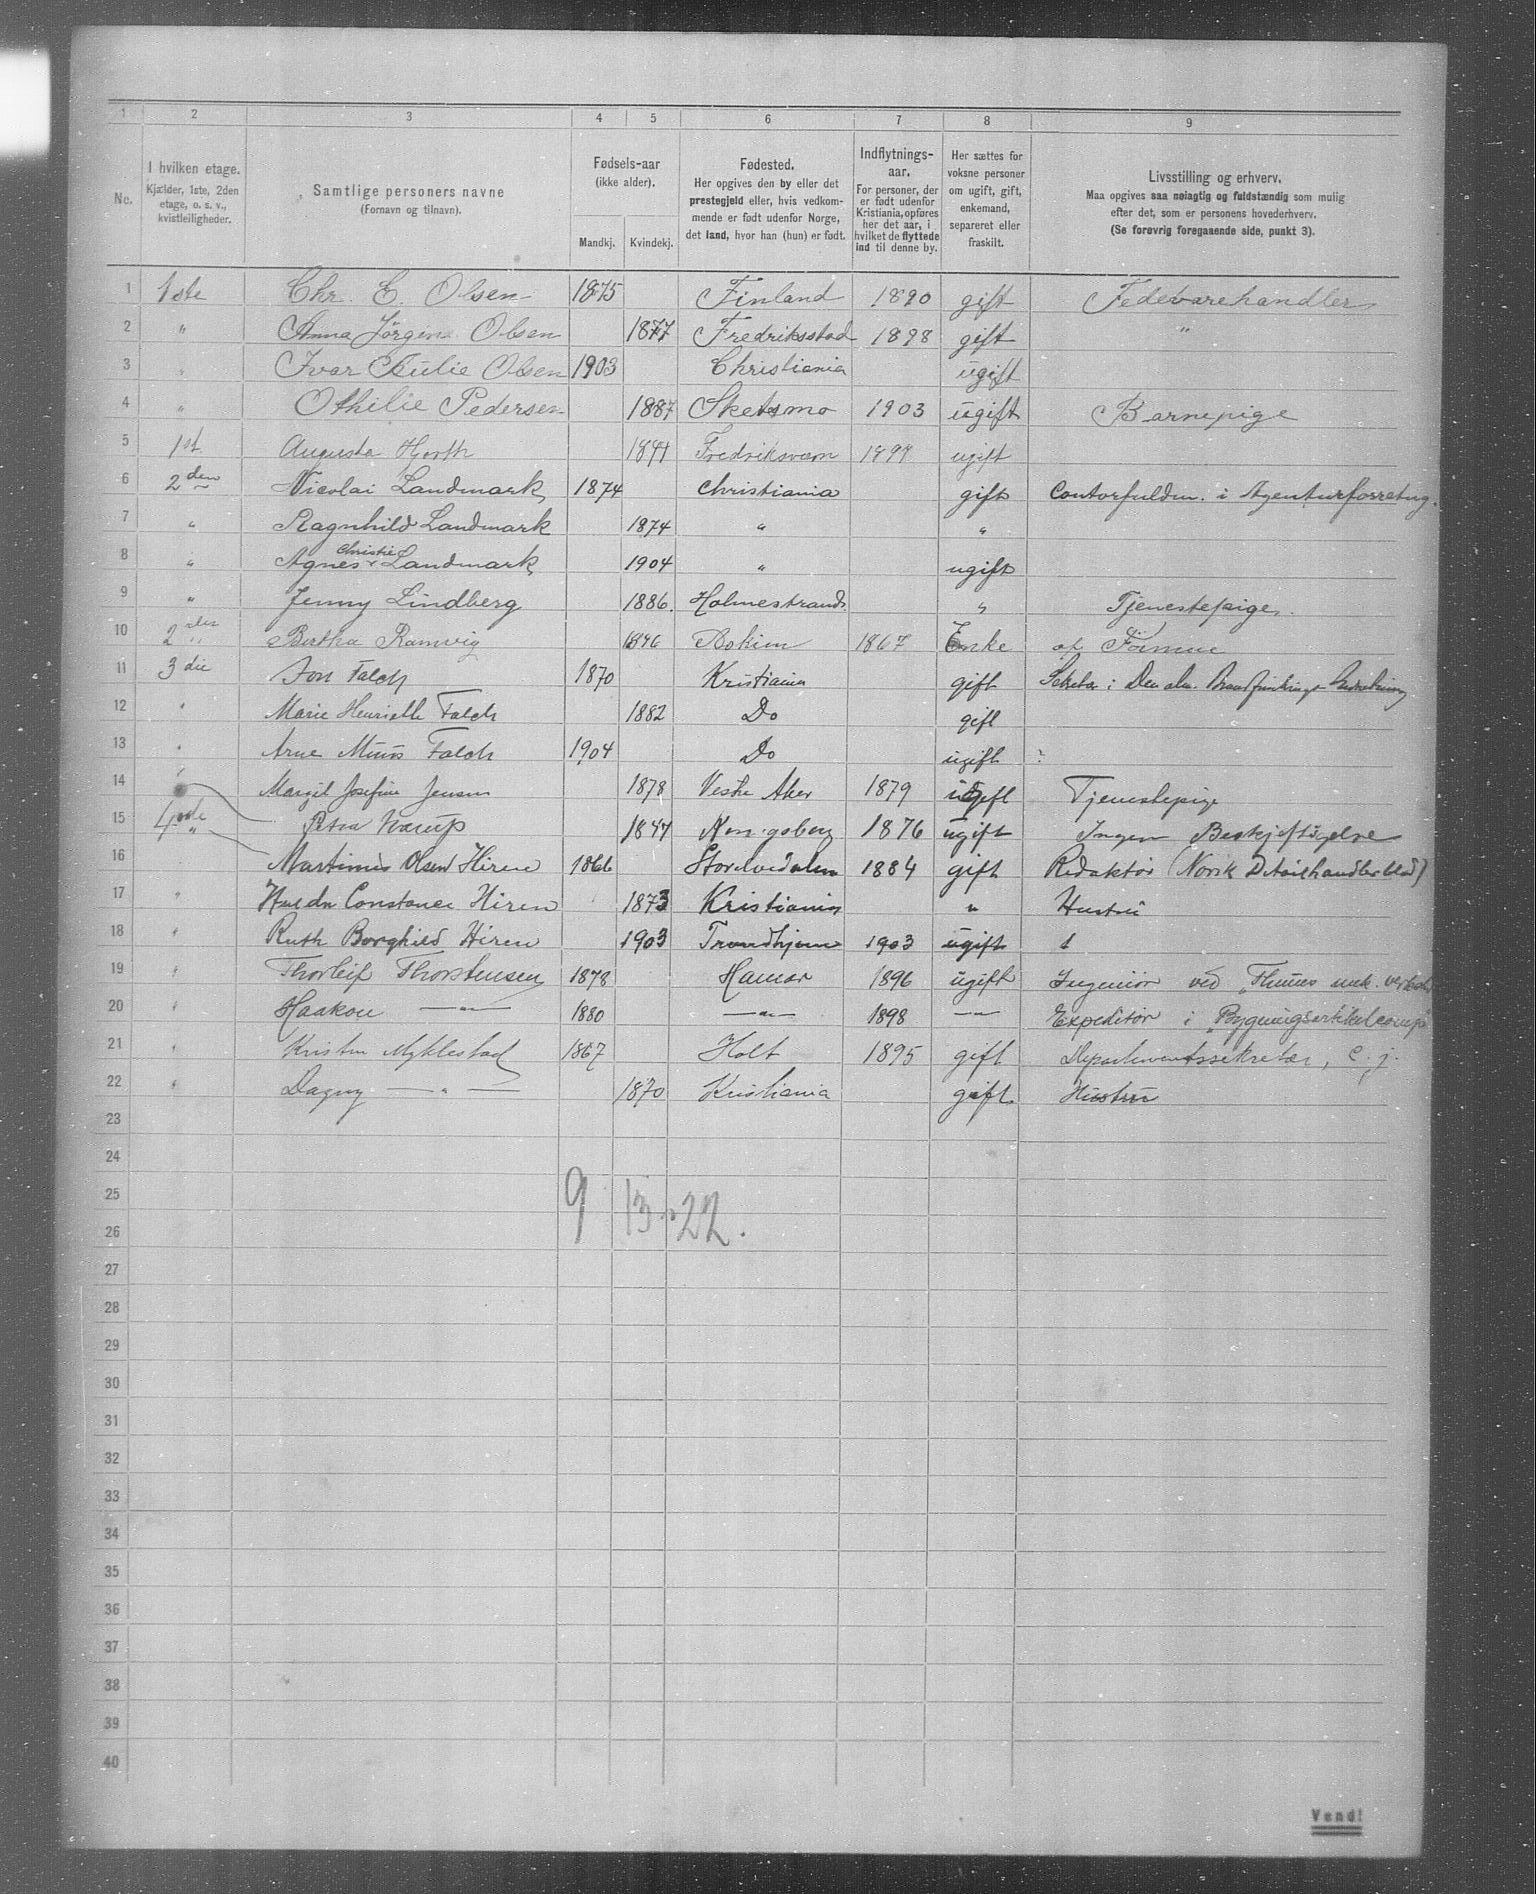 1 2 3 4 5 6 7 8 9
No. I hvilken etage. Kjælder, 1ste, 2den etage, o. s. v., kvistleiligheder. Samtlige personers navne (Fornavn og tilnavn). Fødsels-aar (ikke alder). Mandkj. Kvindekj. Fødested. Her opgives den by eller det prestegjeld eller, hvis vedkommende er født udenfor Norge, det land, hvor han (hun) er født. Indflytnings-aar. For personer, der er født udenfor Kristiania, opføres her det aar, i hvilket de flyttede ind til denne by. Her sættes for voksne personer om ugift, gift, enkemand, separeret eller fraskilt. Livsstilling og erhverv. Maa opgives saa nøiagtig og fuldstændig som mulig efter det, som er personens hovederhverv. (Se forøvrig foregaaende side, punkt 3).
1 1ste Chr. E. Olsen 1875 Finland 1890 gift Fedevarehandler
2 " Anna Jörgine Olsen 1877 Fredriksstad 1898 gift "
3 " Ivar Olsen 1903 Christiania ugift
4 " Othilie Pedersen 1887 Sketsmo 1903 ugift Barnepige
5 1st Augusta Horth Fredriksværn 1899 ugift
6 2den Nicolai Landmark 1874 Christiania gift Contorfuldm. i Agenturforretng.
7 " Ragnhild Landmark 1874 " "
8 " Agnes Christie Landmark 1904 " ugift
9 " Jenny Lindberg 1886. Holmestrand. " Tjenestepige.
10 2den " Bertha Ramvig 1846 Askim 1867 Enke af Formue
11 3die Jon Falch 1870 Kristiania gift Sekretær i Den alm.
12 " Marie Henriette Falch 1882 Do gift
13 " Arne Müus Falch 1904 Do ugift
14 Margit Josefine Jensen 1878 Vestre Aker 1879 ugift Tjenestepige
15 4de " Petra 1847 Kongsberg 1876 ugift Ingen Beskjeftigelse
16 Martinus Olsen Hiren 1866 Storelvedalen 1884 gift Redaktør (Norsk Detailhandlerblad)
17 " Hulda Constance Hiren 1873 Kristiania " Hustru
18 " Ruth Borghild Hiren 1903 Trondhjem 1903 ugift
19 " Thorleif Thorstensen 1878 Hamar 1896 ugift Ingeniör ved "Thunes mek. verksted
20 " Haakon — " — 1880 — " — 1898 — " — Expeditör i "Bygningsartikelcomp"
21 " Kristen Myklestad 1867 Holt 1895 gift Departementssekretær, c. j.
22 " Dagny — " — 1870 Kristiania gift Hustru
23
24
25
9 13 = 22.
26
27
28
29
30
31
32
33
34
35
36
37
38
39
40
Vend!